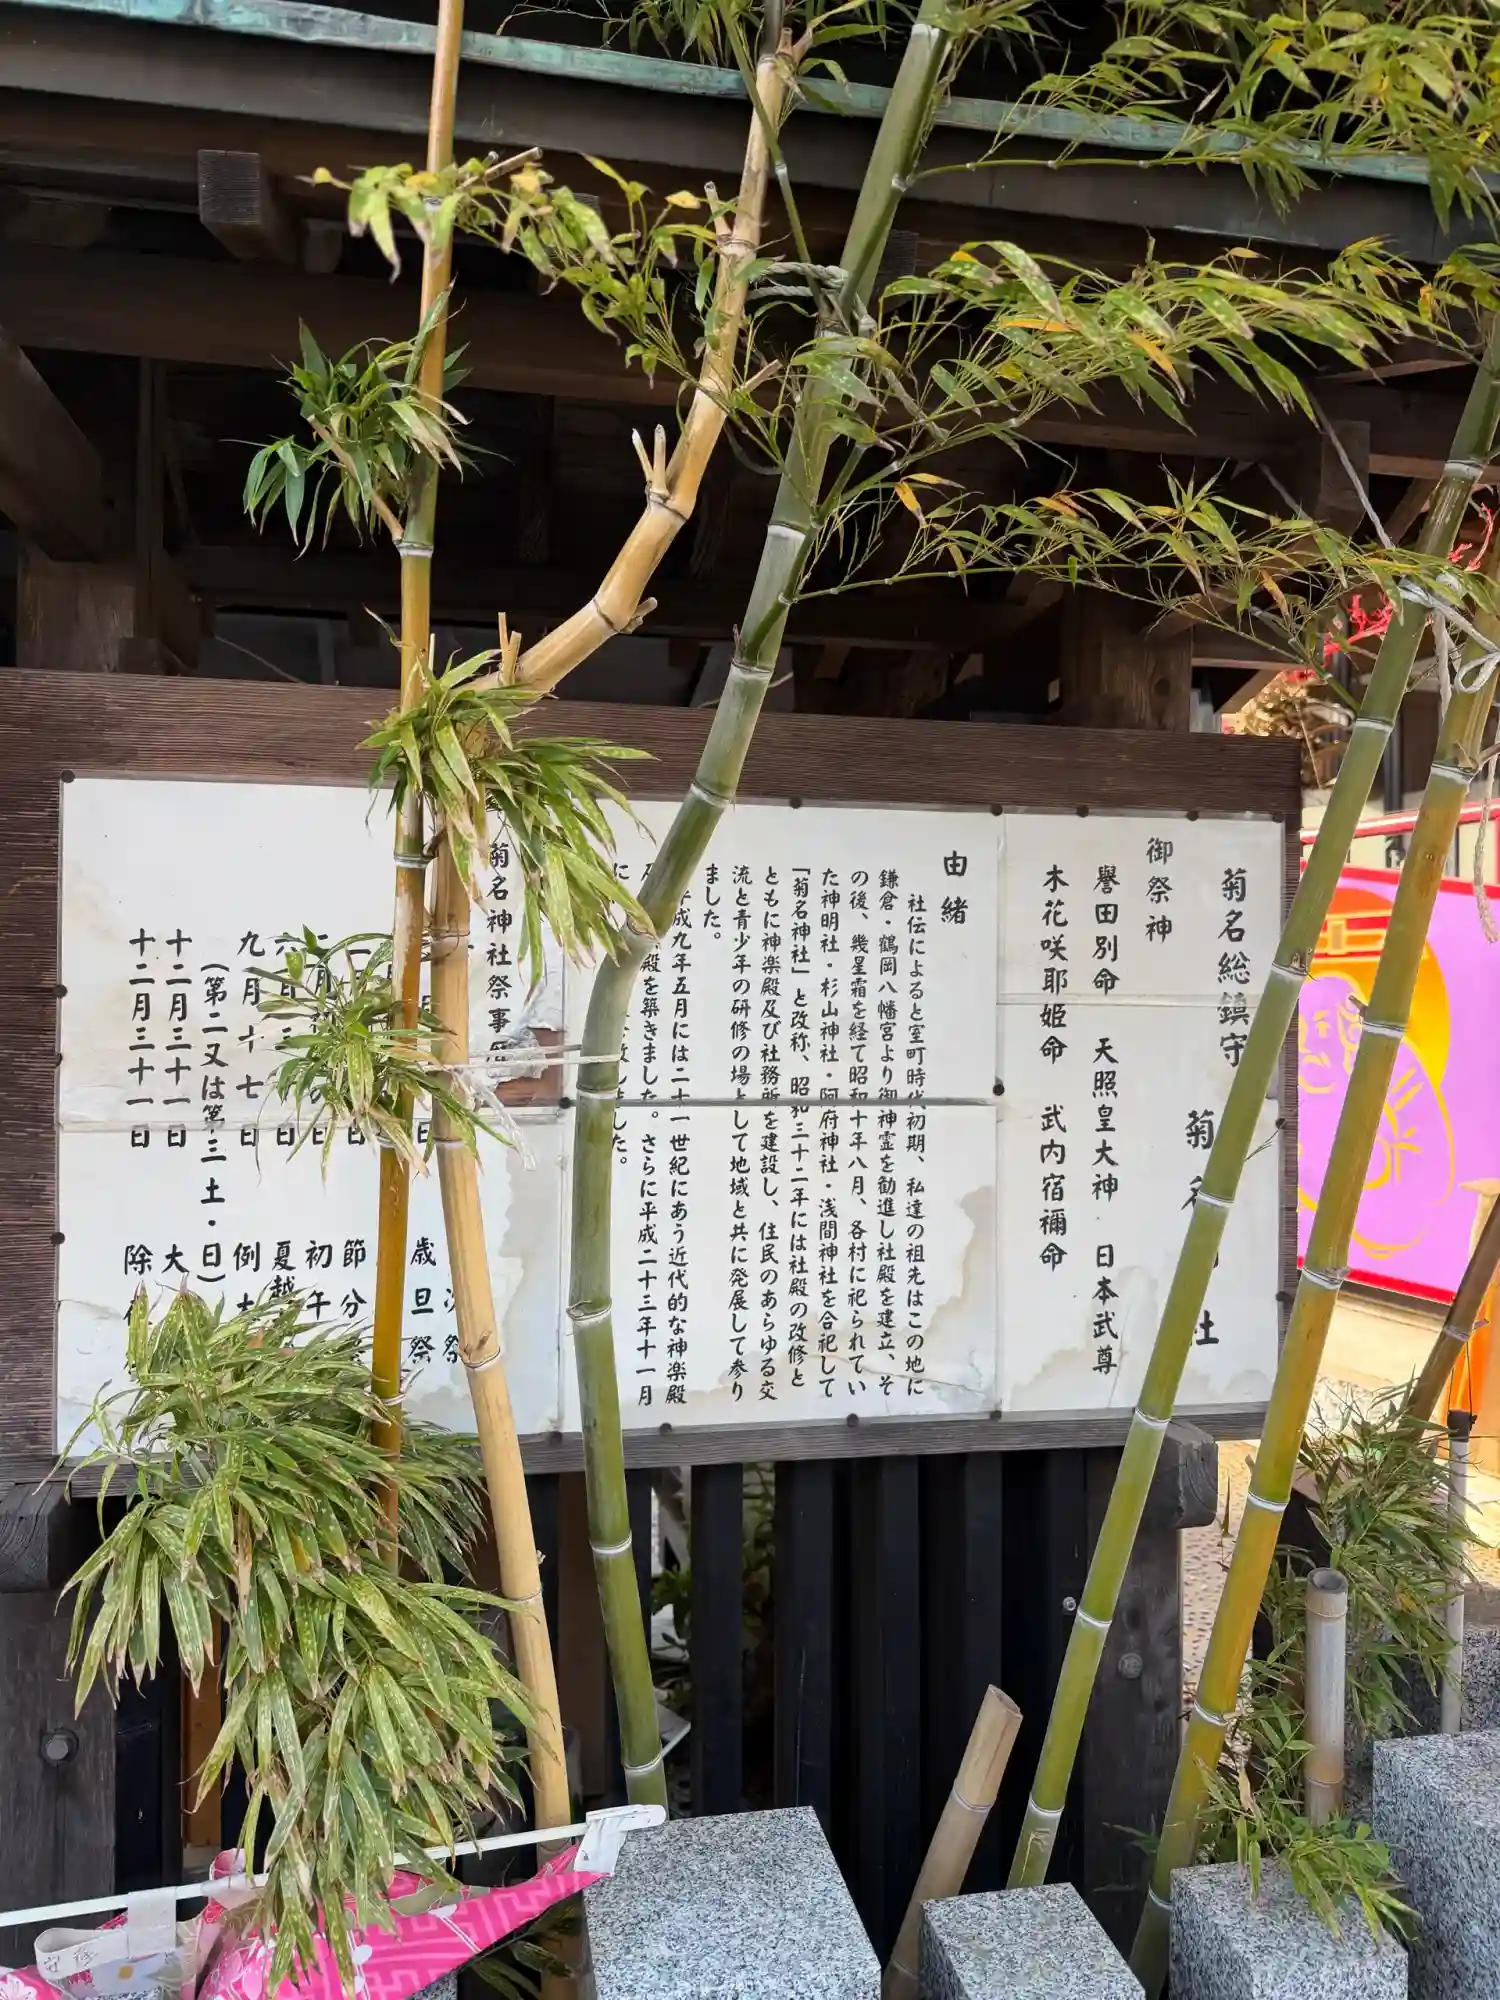 菊名総鎮守
菊名 社
御祭神
譽田別命 天照皇大神 日本武尊
木花咲耶姫命 武内宿禰命
由緒
社伝によると室町時代初期、私達の祖先はこの地に
鎌倉・鶴岡八幡宮より御神霊を勧進し社殿を建立、そ
の後、幾星霜を経て昭和十年八月、各村に祀られてい
た神明社・杉山神社・阿府神社・浅間神社を合祀して
「菊名神社」と改称、昭和三十二年には社殿の改修と
ともに神楽殿及び社務所を建設し、住民のあらゆる交
流と青少年の研修の場として地域と共に発展して参り
ました。
成九年五月には二十一世紀にあう近代的な神楽殿
殿を築きました。さらに平成二十三年十一月
に 致しました。
菊名神社祭事暦
祭
日 歳旦祭
日 節分
日 初午
六月三 日 夏越
九月十七日 例大
(第二又は第三土・日)
十二月三十一日 大
十二月三十一日 除